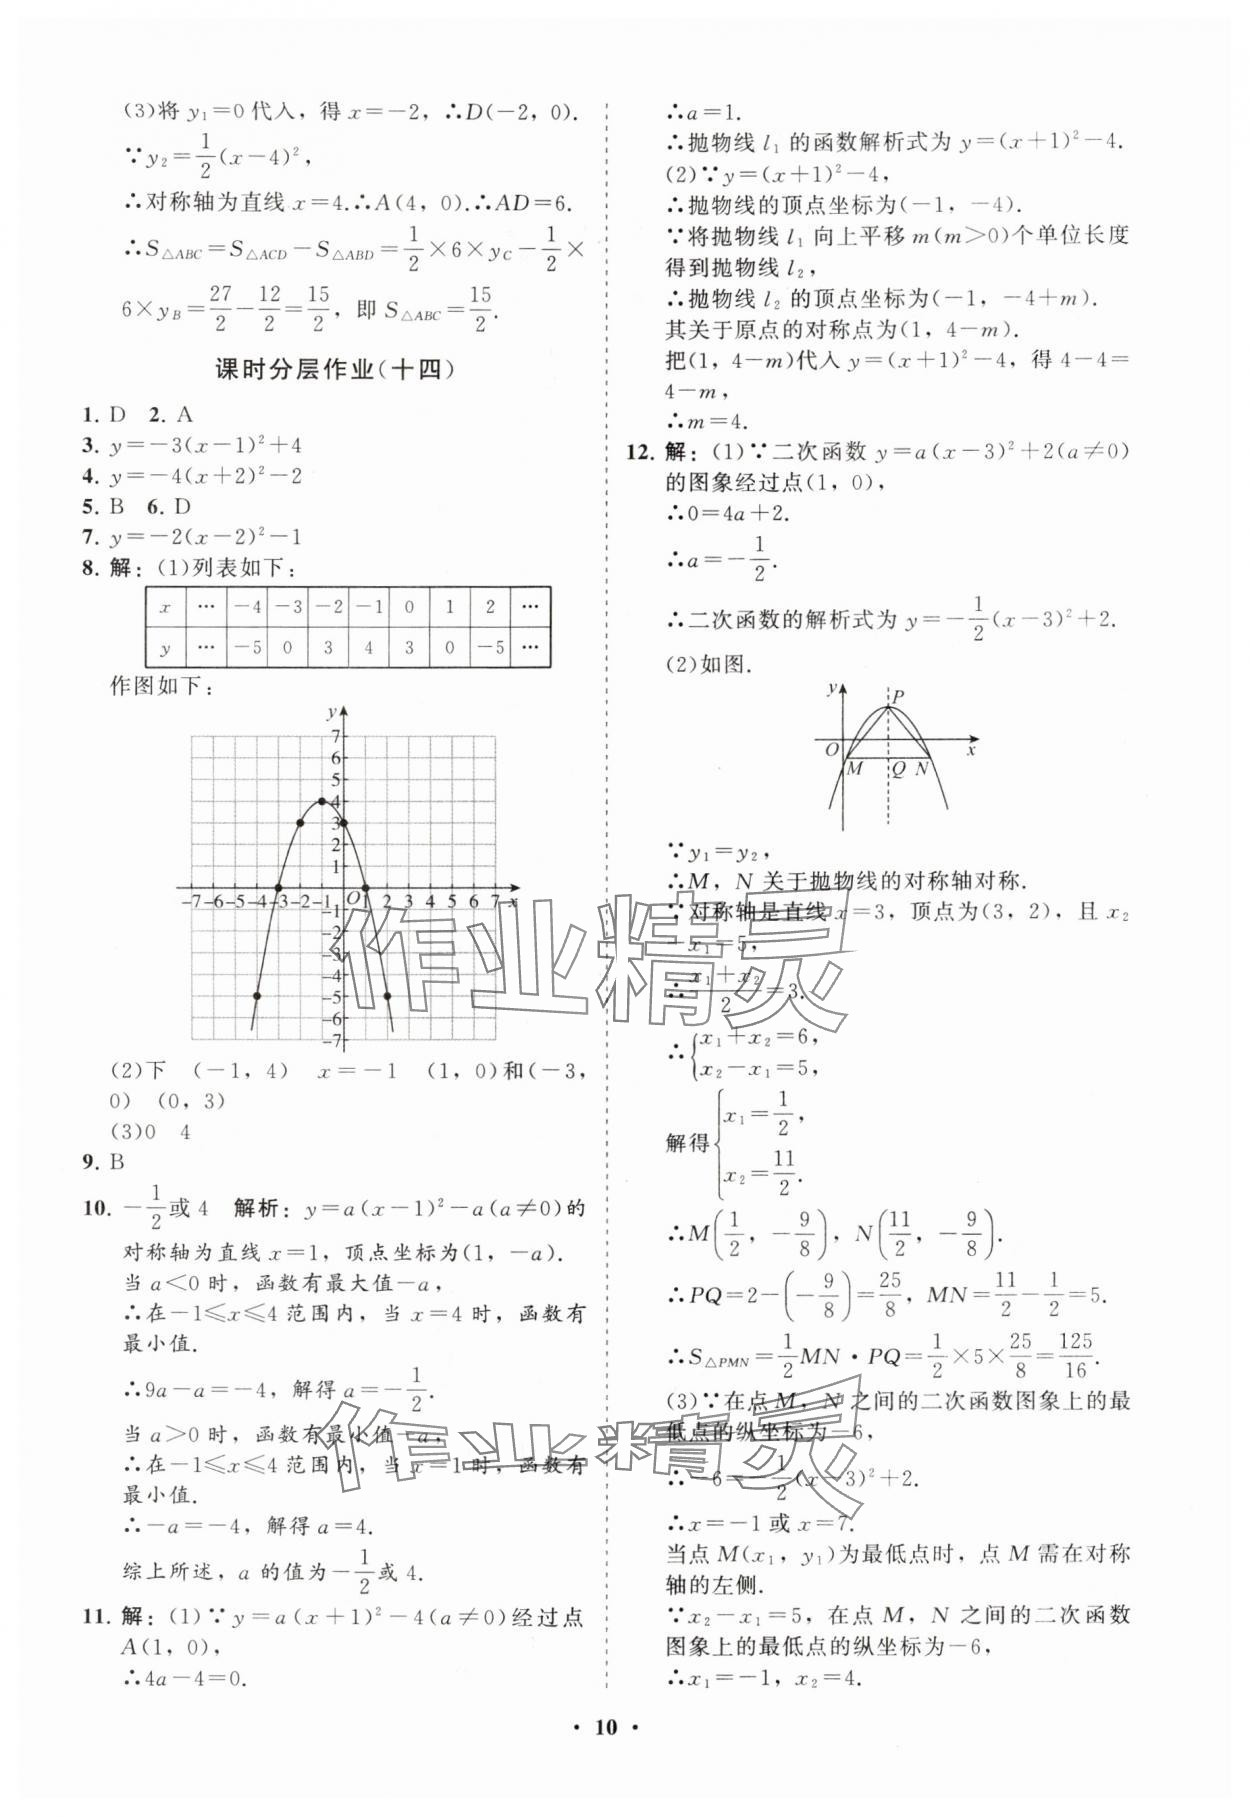 (3)将 y₁=0 代入，得 x=-2，∴D(-2，0).
∵y₂=1/2(x-4)²，
∴对称轴为直线 x=4.∴A(4，0).∴AD=6.
∴S△ABC=S△ACD-S△ABD=1/2×6×yC-1/2×
6×yB=27/2-12/2=15/2，即 S△ABC=15/2.
课时分层作业(十四)
1. D 2. A
3. y=-3(x-1)²+4
4. y=-4(x+2)²-2
5. B 6. D
7. y=-2(x-2)²-1
8. 解：(1)列表如下：
x … -4 -3 -2 -1 0 1 2 …
y … -5 0 3 4 3 0 -5 …
作图如下：
y
7
6
5
4
3
2
1
-7 -6 -5 -4 -3 -2 -1 O 1 2 3 4 5 6 7 x
-1
-2
-3
-4
-5
-6
-7
(2)下 (-1，4) x=-1 (1，0)和(-3，
0) (0，3)
(3)0 4
9. B
10. -1/2或 4 解析：y=a(x-1)²-a(a≠0)的
对称轴为直线 x=1，顶点坐标为(1，-a).
当 a<0 时，函数有最大值-a，
∴在-1≤x≤4 范围内，当 x=4 时，函数有
最小值.
∴9a-a=-4，解得 a=-1/2.
当 a>0 时，函数有最小值-a，
∴在-1≤x≤4 范围内，当 x=1 时，函数有
最小值.
∴-a=-4，解得 a=4.
综上所述，a 的值为-1/2或 4.
11. 解：(1)∵y=a(x+1)²-4(a≠0)经过点
A(1，0)，
∴4a-4=0.
∴a=1.
∴抛物线 l₁ 的函数解析式为 y=(x+1)²-4.
(2)∵y=(x+1)²-4，
∴抛物线的顶点坐标为(-1，-4).
∵将抛物线 l₁ 向上平移 m(m>0)个单位长度
得到抛物线 l₂，
∴抛物线 l₂ 的顶点坐标为(-1，-4+m).
其关于原点的对称点为(1，4-m).
把(1，4-m)代入 y=(x+1)²-4，得 4-4=
4-m，
∴m=4.
12. 解：(1)∵二次函数 y=a(x-3)²+2(a≠0)
的图象经过点(1，0)，
∴0=4a+2.
∴a=-1/2.
∴二次函数的解析式为 y=-1/2(x-3)²+2.
(2)如图.
y P
O x
M Q N
∵y₁=y₂，
∴M，N 关于抛物线的对称轴对称.
∵对称轴是直线 x=3，顶点为(3，2)，且 x₂
-x₁=5，
∴(x₁+x₂)/2=3.
∴{x₁+x₂=6，
x₂-x₁=5，
解得{x₁=1/2，
x₂=11/2.
∴M(1/2，-9/8)，N(11/2，-9/8).
∴PQ=2-(-9/8)=25/8，MN=11/2-1/2=5.
∴S△PMN=1/2MN·PQ=1/2×5×25/8=125/16.
(3)∵在点 M，N 之间的二次函数图象上的最
低点的纵坐标为-6，
∴-6=-1/2(x-3)²+2.
∴x=-1 或 x=7.
当点 M(x₁，y₁)为最低点时，点 M 需在对称
轴的左侧.
∵x₂-x₁=5，在点 M，N 之间的二次函数
图象上的最低点的纵坐标为-6，
∴x₁=-1，x₂=4.
作业精灵
作业精灵
· 10 ·